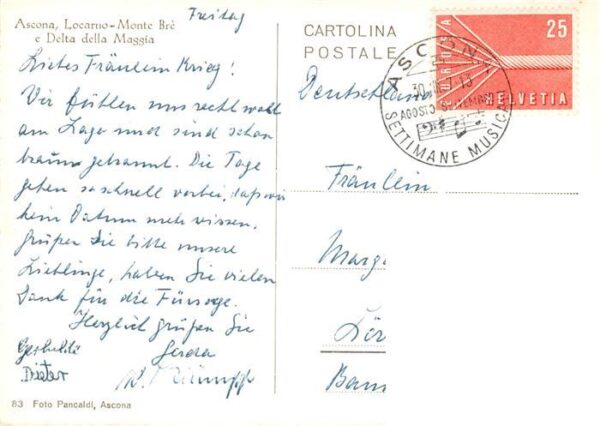 Freitag
Ascona, Locarno-Monte Brè
e Delta della Maggia
Liebes Fräulein Krieg!
Wir fühlen uns recht wohl
am Lago und sind schon
braun gebrannt. Die Tage
gehen so schnell vorbei, daß wir
kein Datum mehr wissen.
Grüßen Sie bitte unsere
Lieblinge, haben Sie vielen
Dank für die Fürsorge.
Herzlich grüßen Sie
Gerda
Dieter
83 Foto Pancaldi, Ascona
CARTOLINA
POSTALE
Deutschland
Fräulein
Marg
Lör
25
HELVETIA
ASCONA
AGOSTO
SETTIMANE MUSICA